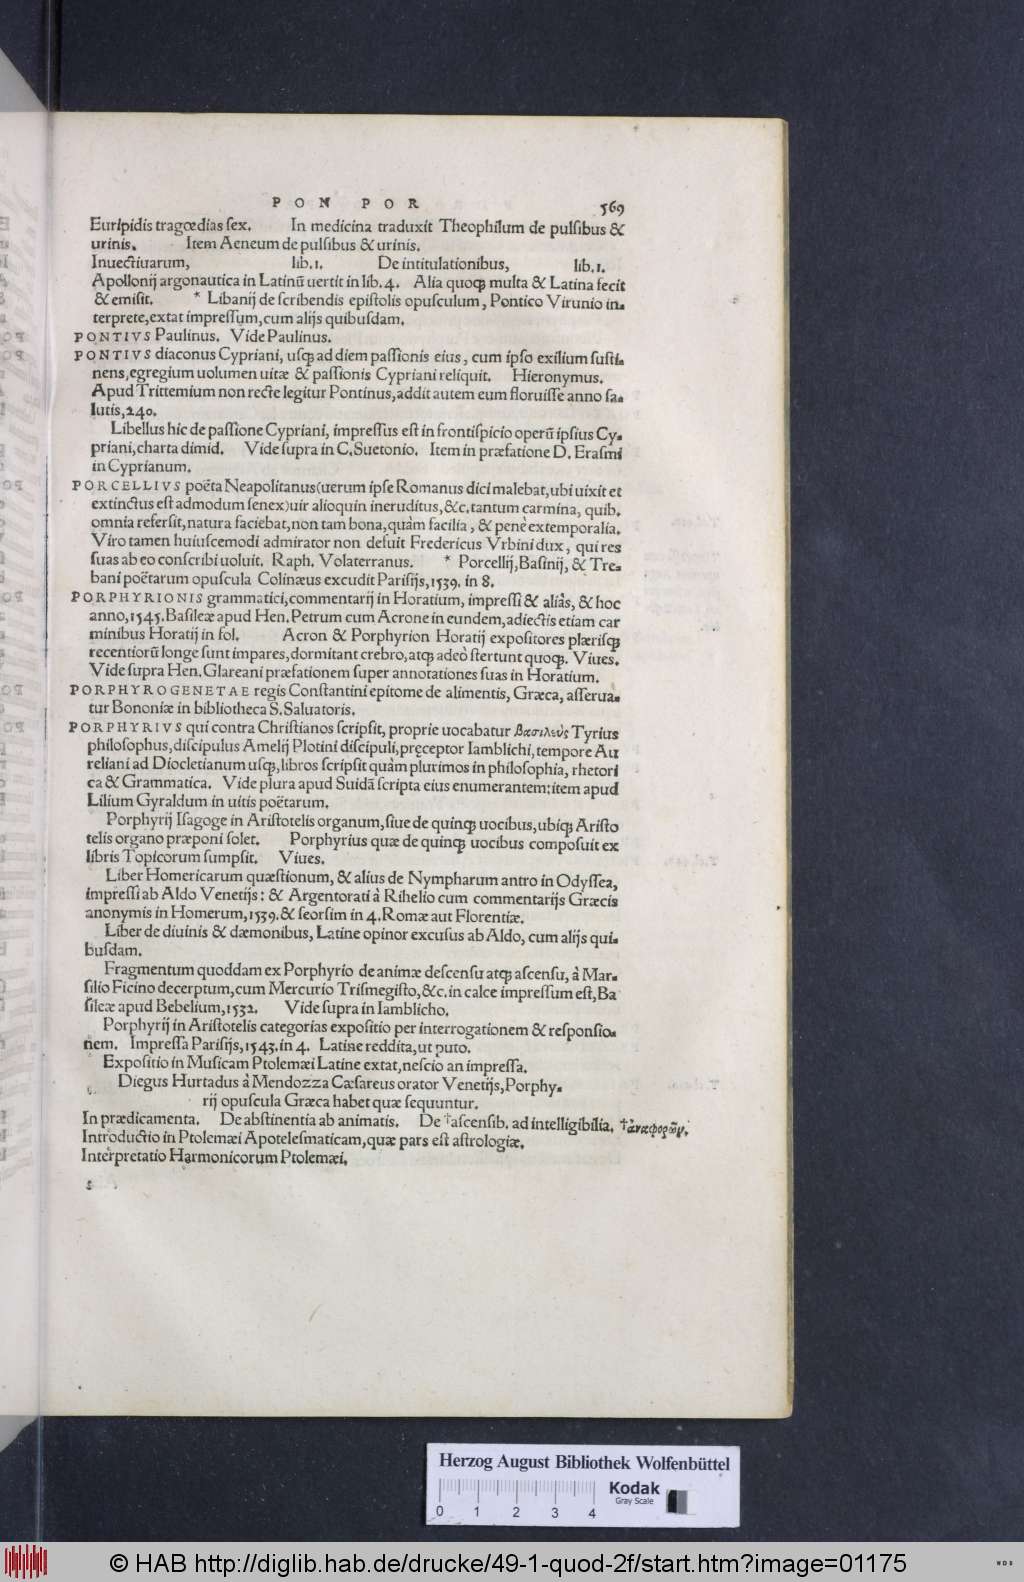 PON POR 569
Euripidis tragœdias sex. In medicina traduxit Theophilum de pulsibus &
urinis. Item Aeneum de pulsibus & urinis.
Inuectiuarum, lib.1. De intitulationibus, lib.1.
Apollonij argonautica in Latinũ uertit in lib.4. Alia quoqꝫ multa & Latina fecit
& emisit. * Libanij de scribendis epistolis opusculum, Pontico Virunio in-
terprete, extat impressum, cum alijs quibusdam.
PONTIVS Paulinus. Vide Paulinus.
PONTIVS diaconus Cypriani, usqꝫ ad diem passionis eius, cum ipso exilium susti-
nens, egregium uolumen uitæ & passionis Cypriani reliquit. Hieronymus.
Apud Trittemium non recte legitur Pontinus, addit autem eum floruisse anno sa-
lutis, 240.
Libellus hic de passione Cypriani, impressus est in frontispicio operũ ipsius Cy-
priani, charta dimid. Vide supra in C. Suetonio. Item in præfatione D. Erasmi
in Cyprianum.
PORCELLIVS poëta Neapolitanus (uerum ipse Romanus dici malebat, ubi uixit et
extinctus est admodum senex) uir alioquin ineruditus, &c. tantum carmina, quib.
omnia refersit, natura faciebat, non tam bona, quàm facilia, & penè extemporalia.
Viro tamen huiuscemodi admirator non defuit Fredericus Vrbini dux, qui res
suas ab eo conscribi uoluit. Raph. Volaterranus. * Porcellij, Basinij, & Tre-
bani poëtarum opuscula Colinæus excudit Parisijs, 1539. in 8.
PORPHYRIONIS grammatici, commentarij in Horatium, impressi & aliàs, & hoc
anno, 1545. Basileæ apud Hen. Petrum cum Acrone in eundem, adiectis etiam car
minibus Horatij in fol. Acron & Porphyrion Horatij expositores plærisqꝫ
recentiorũ longe sunt impares, dormitant crebro, atqꝫ adeò stertunt quoqꝫ. Viues.
Vide supra Hen. Glareani præfationem super annotationes suas in Horatium.
PORPHYROGENETAE regis Constantini epitome de alimentis, Græca, asserua-
tur Bononiæ in bibliotheca S. Saluatoris.
PORPHYRIVS qui contra Christianos scripsit, proprie uocabatur βασιλεὺς Tyrius
philosophus, discipulus Amelij Plotini discipuli, pręceptor Iamblichi, tempore Au
reliani ad Diocletianum usqꝫ, libros scripsit quàm plurimos in philosophia, rhetori
ca & Grammatica. Vide plura apud Suidã scripta eius enumerantem: item apud
Lilium Gyraldum in uitis poëtarum.
Porphyrij Isagoge in Aristotelis organum, siue de quinqꝫ uocibus, ubiqꝫ Aristo
telis organo præponi solet. Porphyrius quæ de quinqꝫ uocibus composuit ex
libris Topicorum sumpsit. Viues.
Liber Homericarum quæstionum, & alius de Nympharum antro in Odyssea,
impressi ab Aldo Venetijs: & Argentorati à Rihelio cum commentarijs Græcis
anonymis in Homerum, 1539. & seorsim in 4. Romæ aut Florentiæ.
Liber de diuinis & dæmonibus, Latine opinor excusus ab Aldo, cum alijs qui-
busdam.
Fragmentum quoddam ex Porphyrio de animæ descensu atqꝫ ascensu, à Mar-
silio Ficino decerptum, cum Mercurio Trismegisto, &c. in calce impressum est, Ba
sileæ apud Bebelium, 1532. Vide supra in Iamblicho.
Porphyrij in Aristotelis categorias expositio per interrogationem & responsio-
nem. Impressa Parisijs, 1543. in 4. Latine reddita, ut puto.
Expositio in Musicam Ptolemæi Latine extat, nescio an impressa.
Diegus Hurtadus à Mendozza Cæsareus orator Venetijs, Porphy-
rij opuscula Græca habet quæ sequuntur.
In prædicamenta. De abstinentia ab animatis. De †ascensib. ad intelligibilia. †ἀναφορῶν.
Introductio in Ptolemæi Apotelesmaticam, quæ pars est astrologiæ.
Interpretatio Harmonicorum Ptolemæi.
Herzog August Bibliothek Wolfenbüttel
0 1 2 3 4
Kodak
Gray Scale
© HAB http://diglib.hab.de/drucke/49-1-quod-2f/start.htm?image=01175
WDB